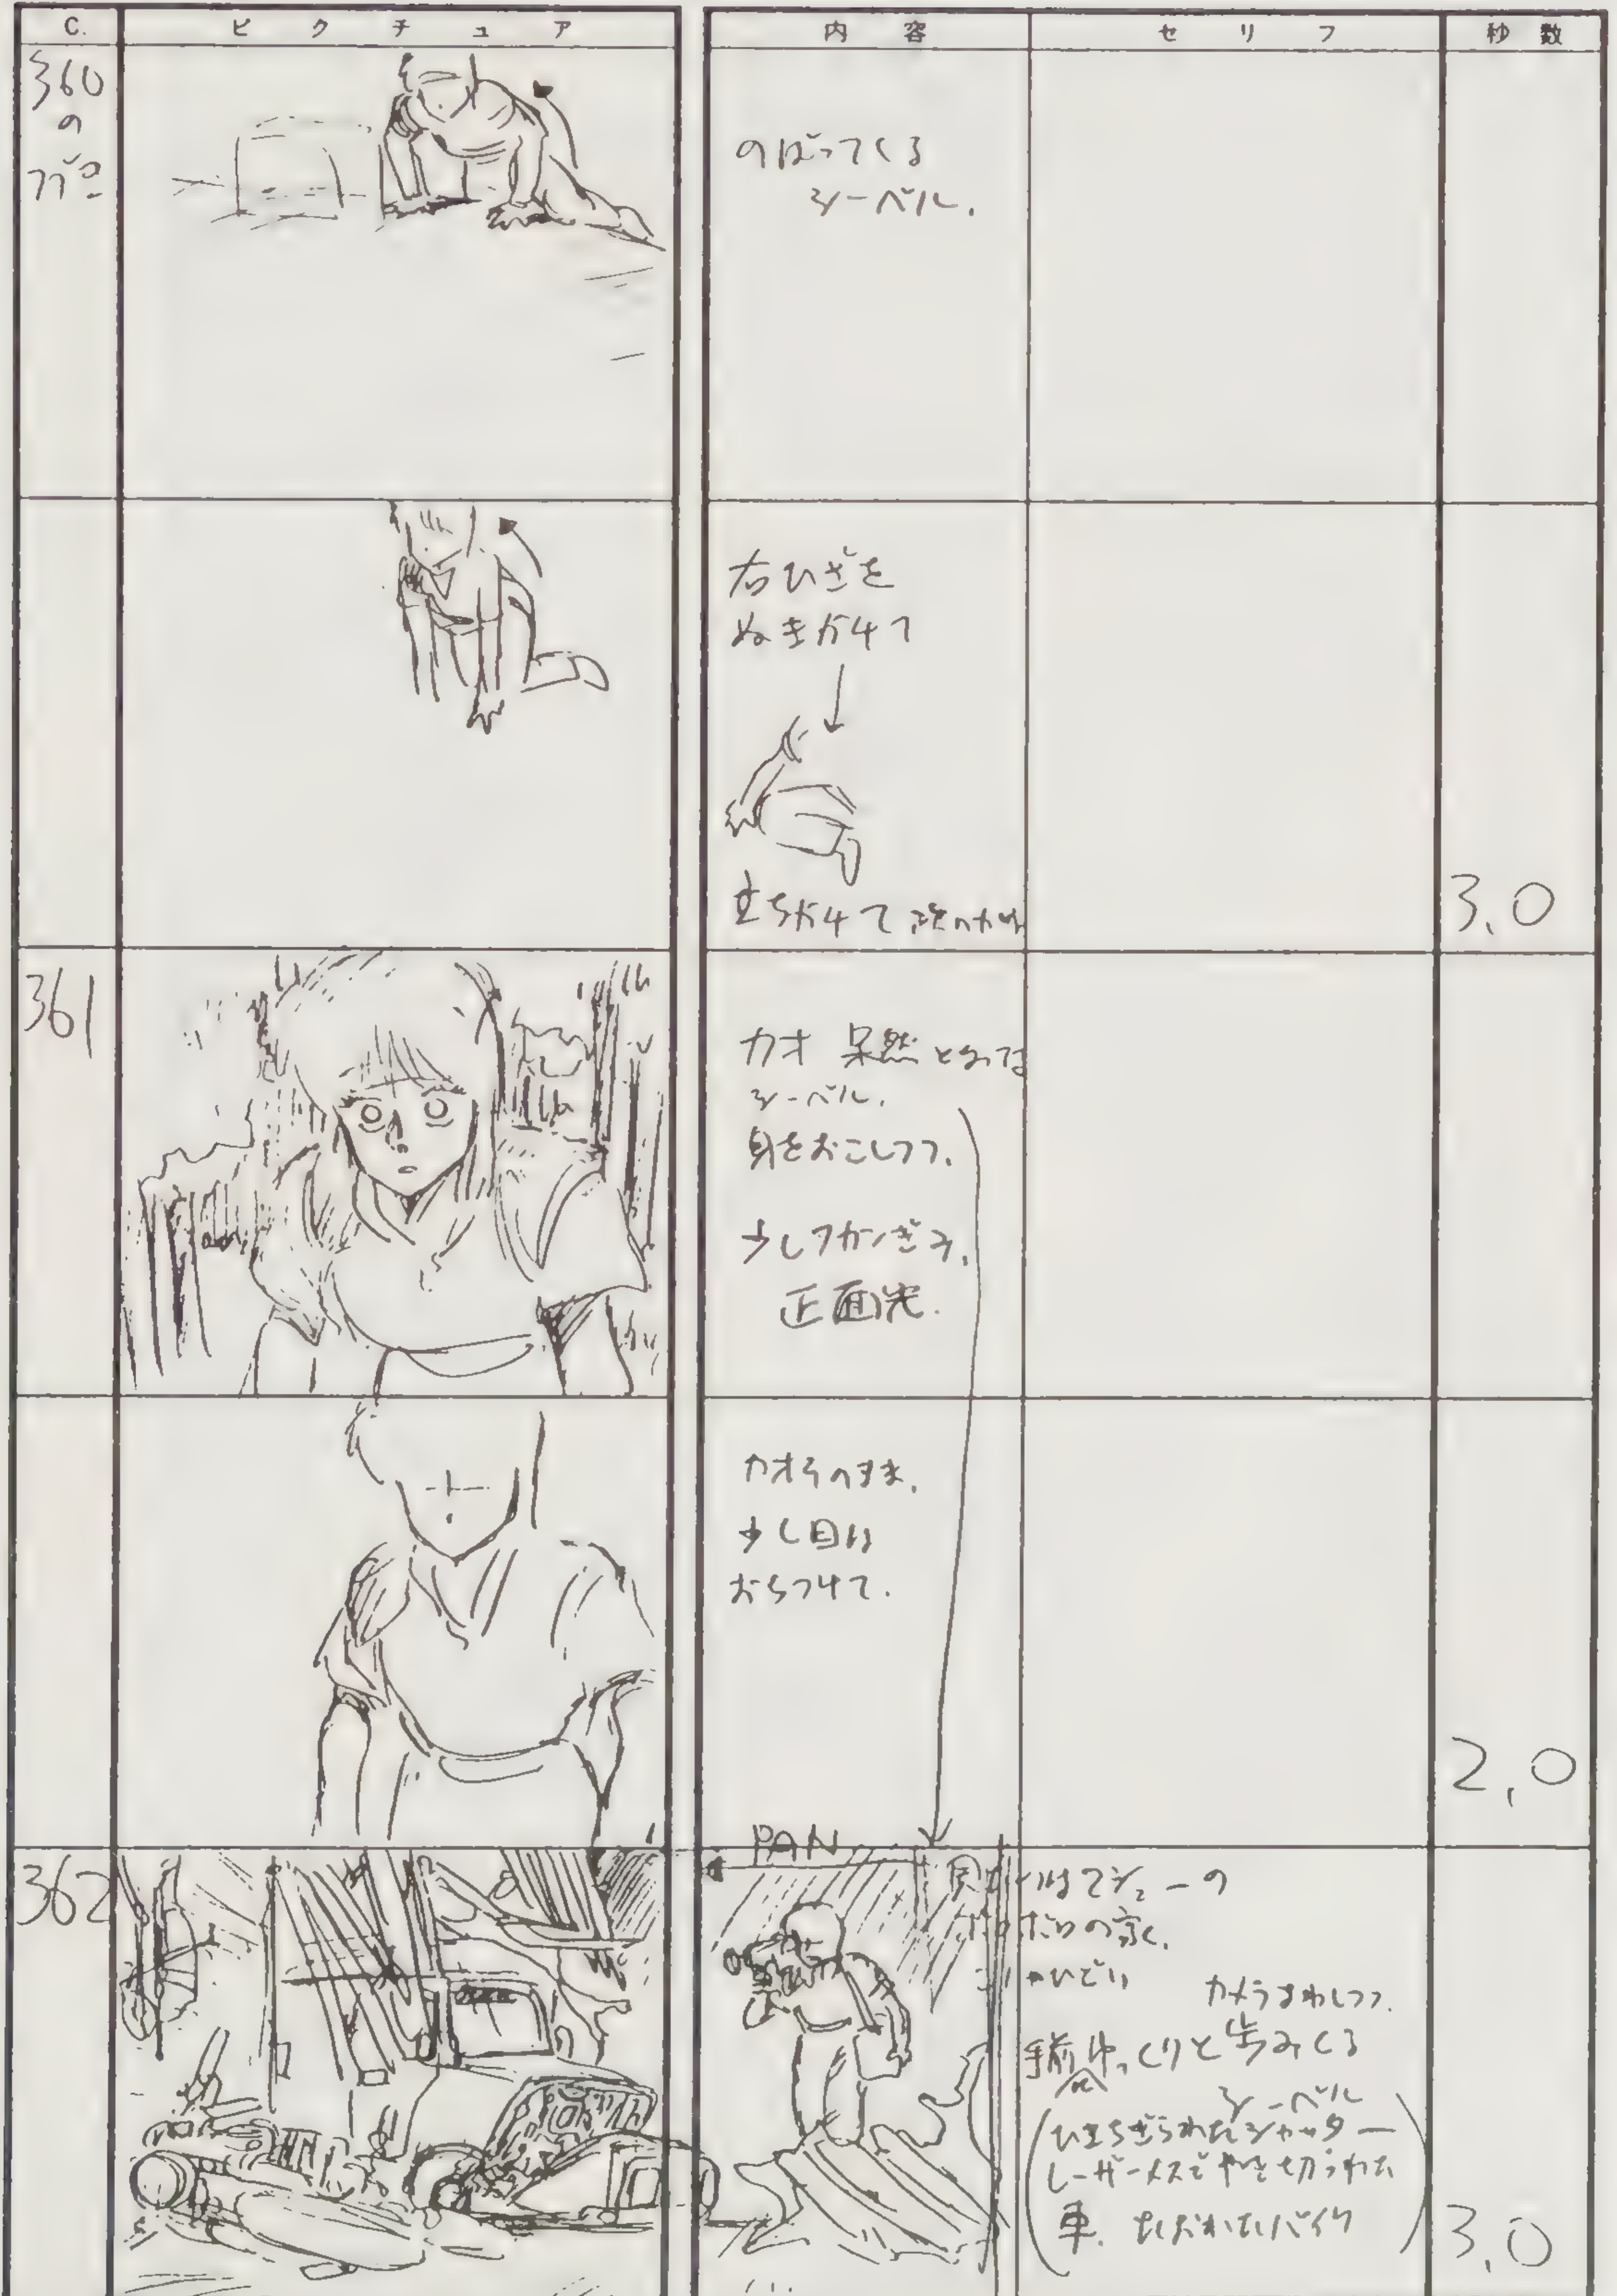 C.
ピクチュア
内容
セリフ
秒数
360
の
つづき
のぼってくる
シーベル.
右ひざを
ぬきかけて
立ちかけて 次のカット
3.0
361
カオ 呆然となってる
シーベル.
身をおこしつつ.
少しフカンぎみ.
正面光.
カオそのまま.
少し目は
おちつけて.
2.0
362
PAN
シューの
ボロボロの家.
カメラまわしつつ.
手前へゆっくりと歩みくる
シーベル
ひきちぎられたシャッター
レーザーメスでやき切られた
車. たおれたバイク
3.0